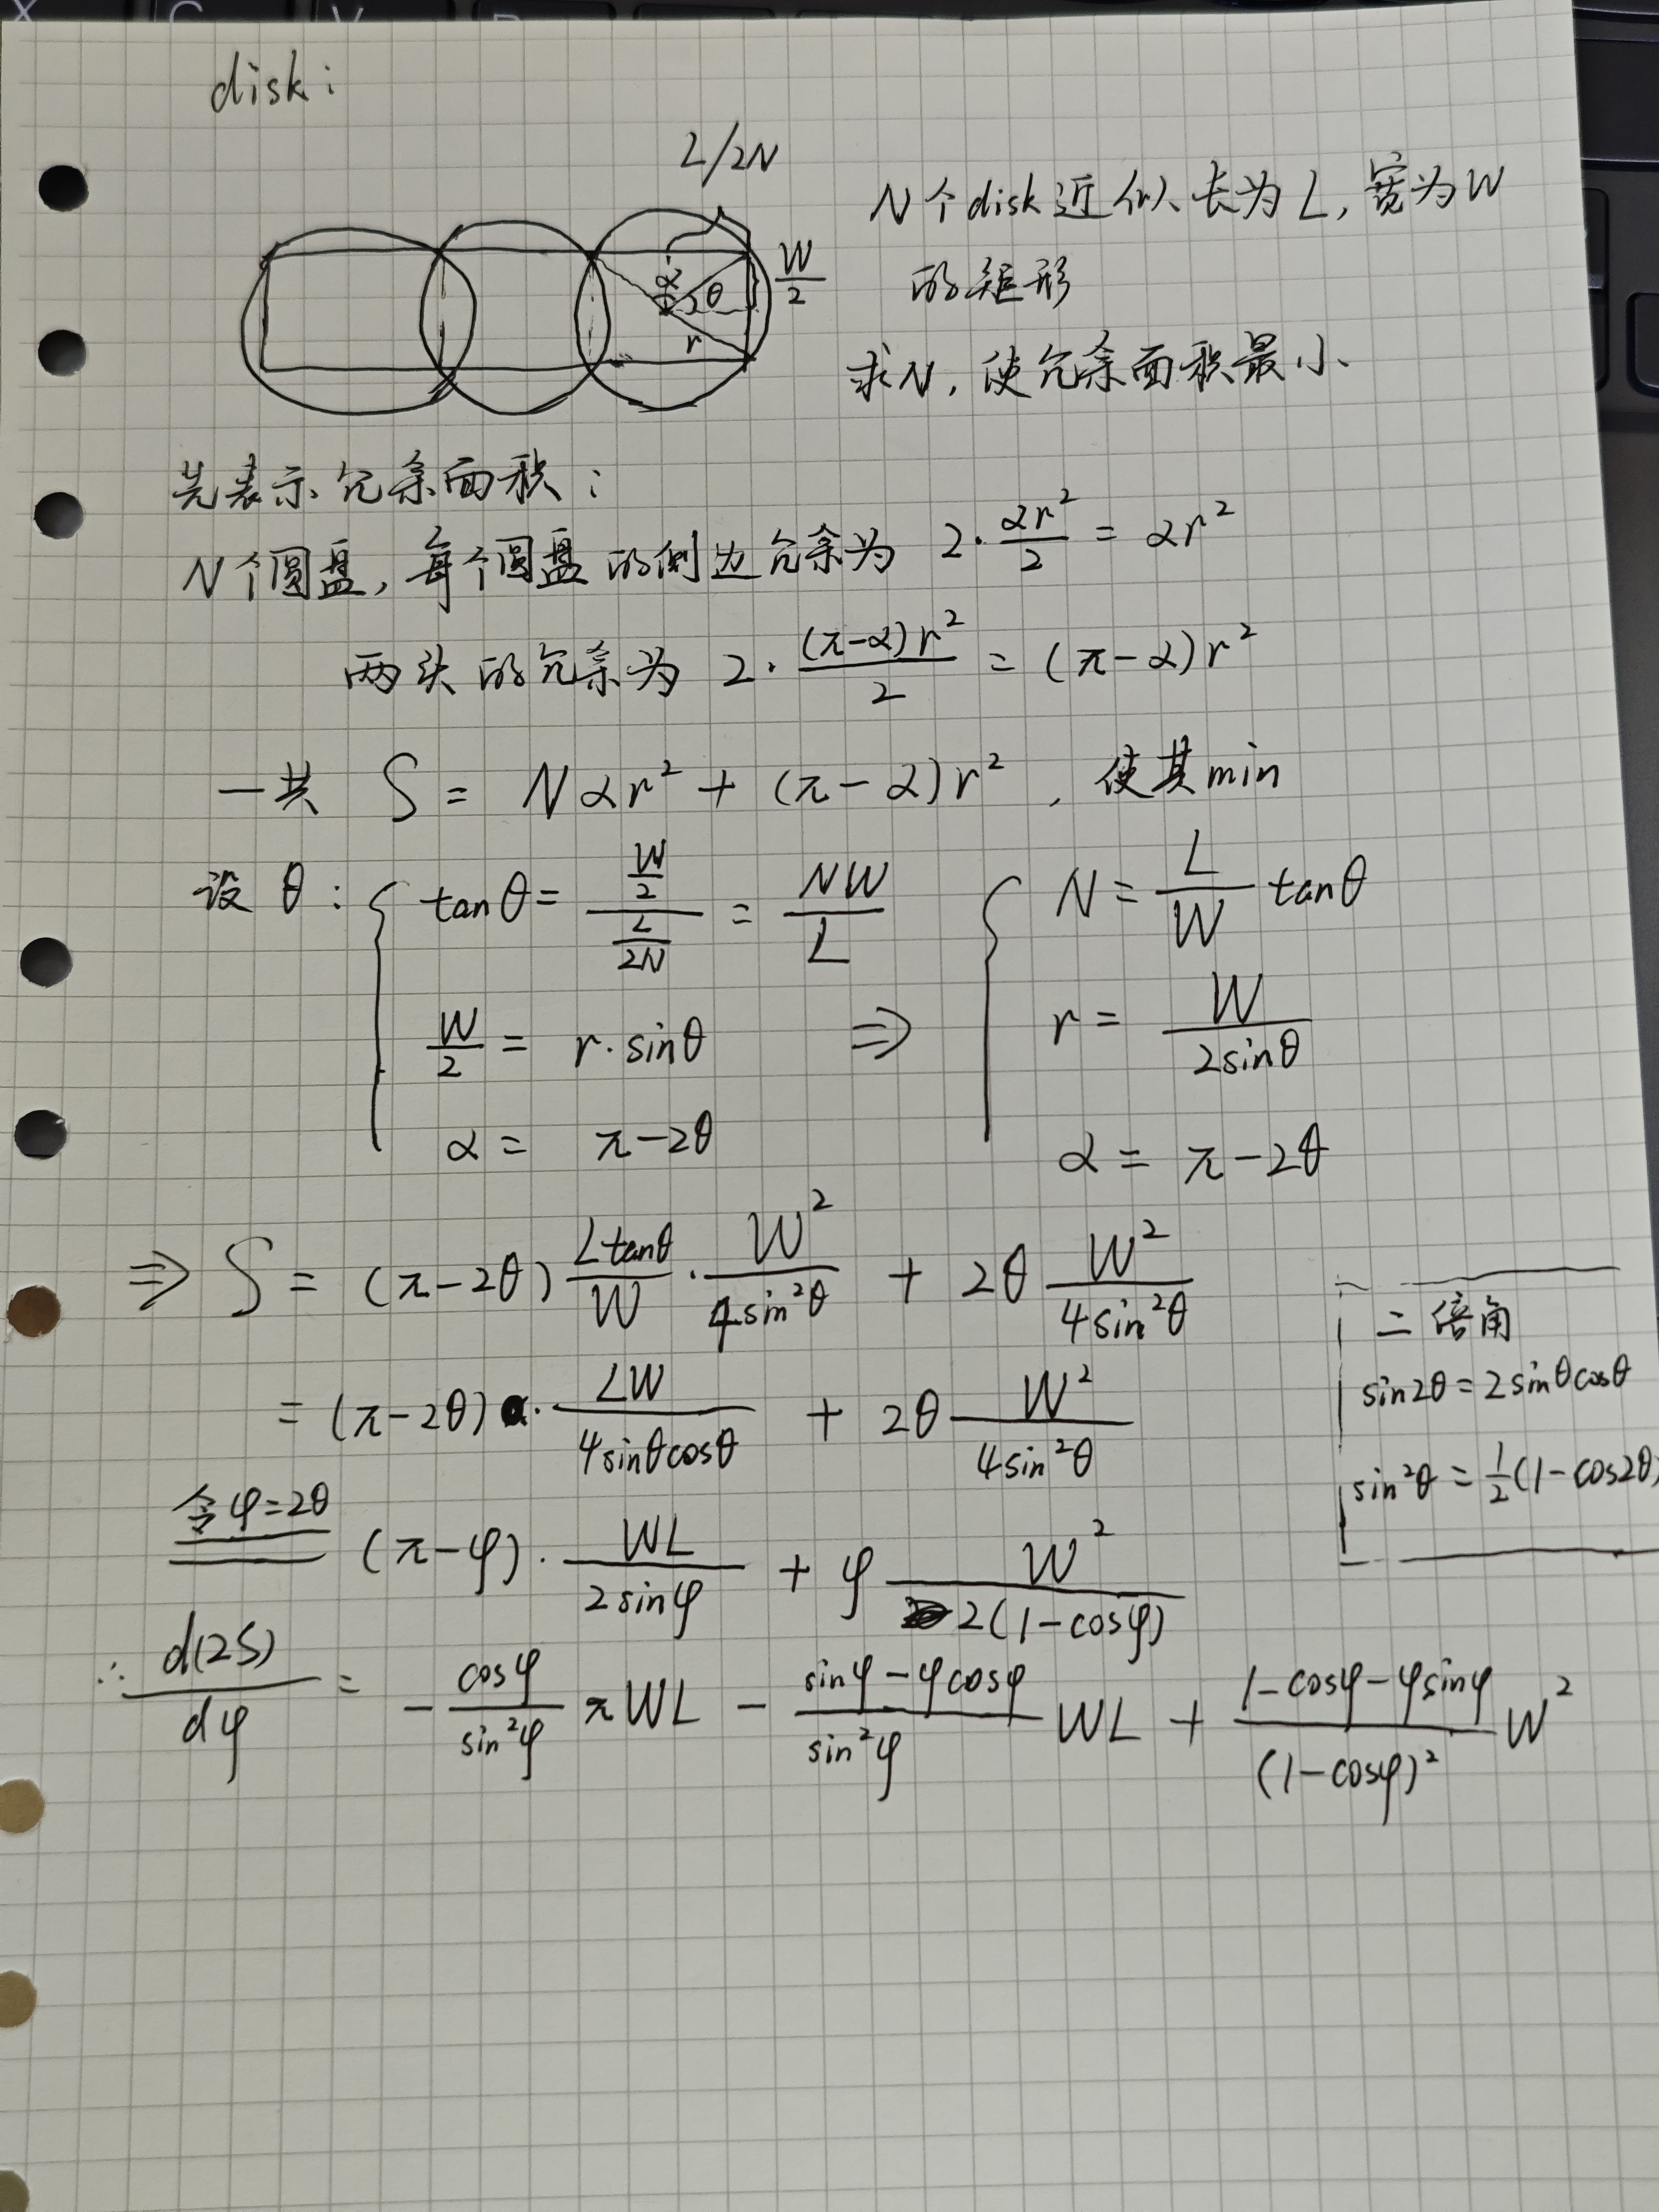 disk:
L/2N
N个disk近似长为L,宽为W
的矩形
求N,使冗余面积最小.
α θ W/2
r
先表示冗余面积:
N个圆盘,每个圆盘的侧边冗余为 2·αr²/2 = αr²
两头的冗余为 2·(π-α)r²/2 = (π-α)r²
一共 S = Nαr² + (π-α)r² , 使其min
设θ: { tanθ = (W/2)/(L/2N) = NW/L { N = L/W tanθ
W/2 = r·sinθ ⇒ r = W/(2sinθ)
α = π-2θ α = π-2θ
⇒ S = (π-2θ) Ltanθ/W · W²/(4sin²θ) + 2θ W²/(4sin²θ)
= (π-2θ) · LW/(4sinθcosθ) + 2θ W²/(4sin²θ)
二倍角
sin2θ = 2sinθcosθ
sin²θ = 1/2(1-cos2θ)
令φ=2θ (π-φ)· WL/(2sinφ) + φ W²/(2(1-cosφ))
∴ d(2S)/dφ = - cosφ/sin²φ πWL - (sinφ-φcosφ)/sin²φ WL + (1-cosφ-φsinφ)/(1-cosφ)² W²